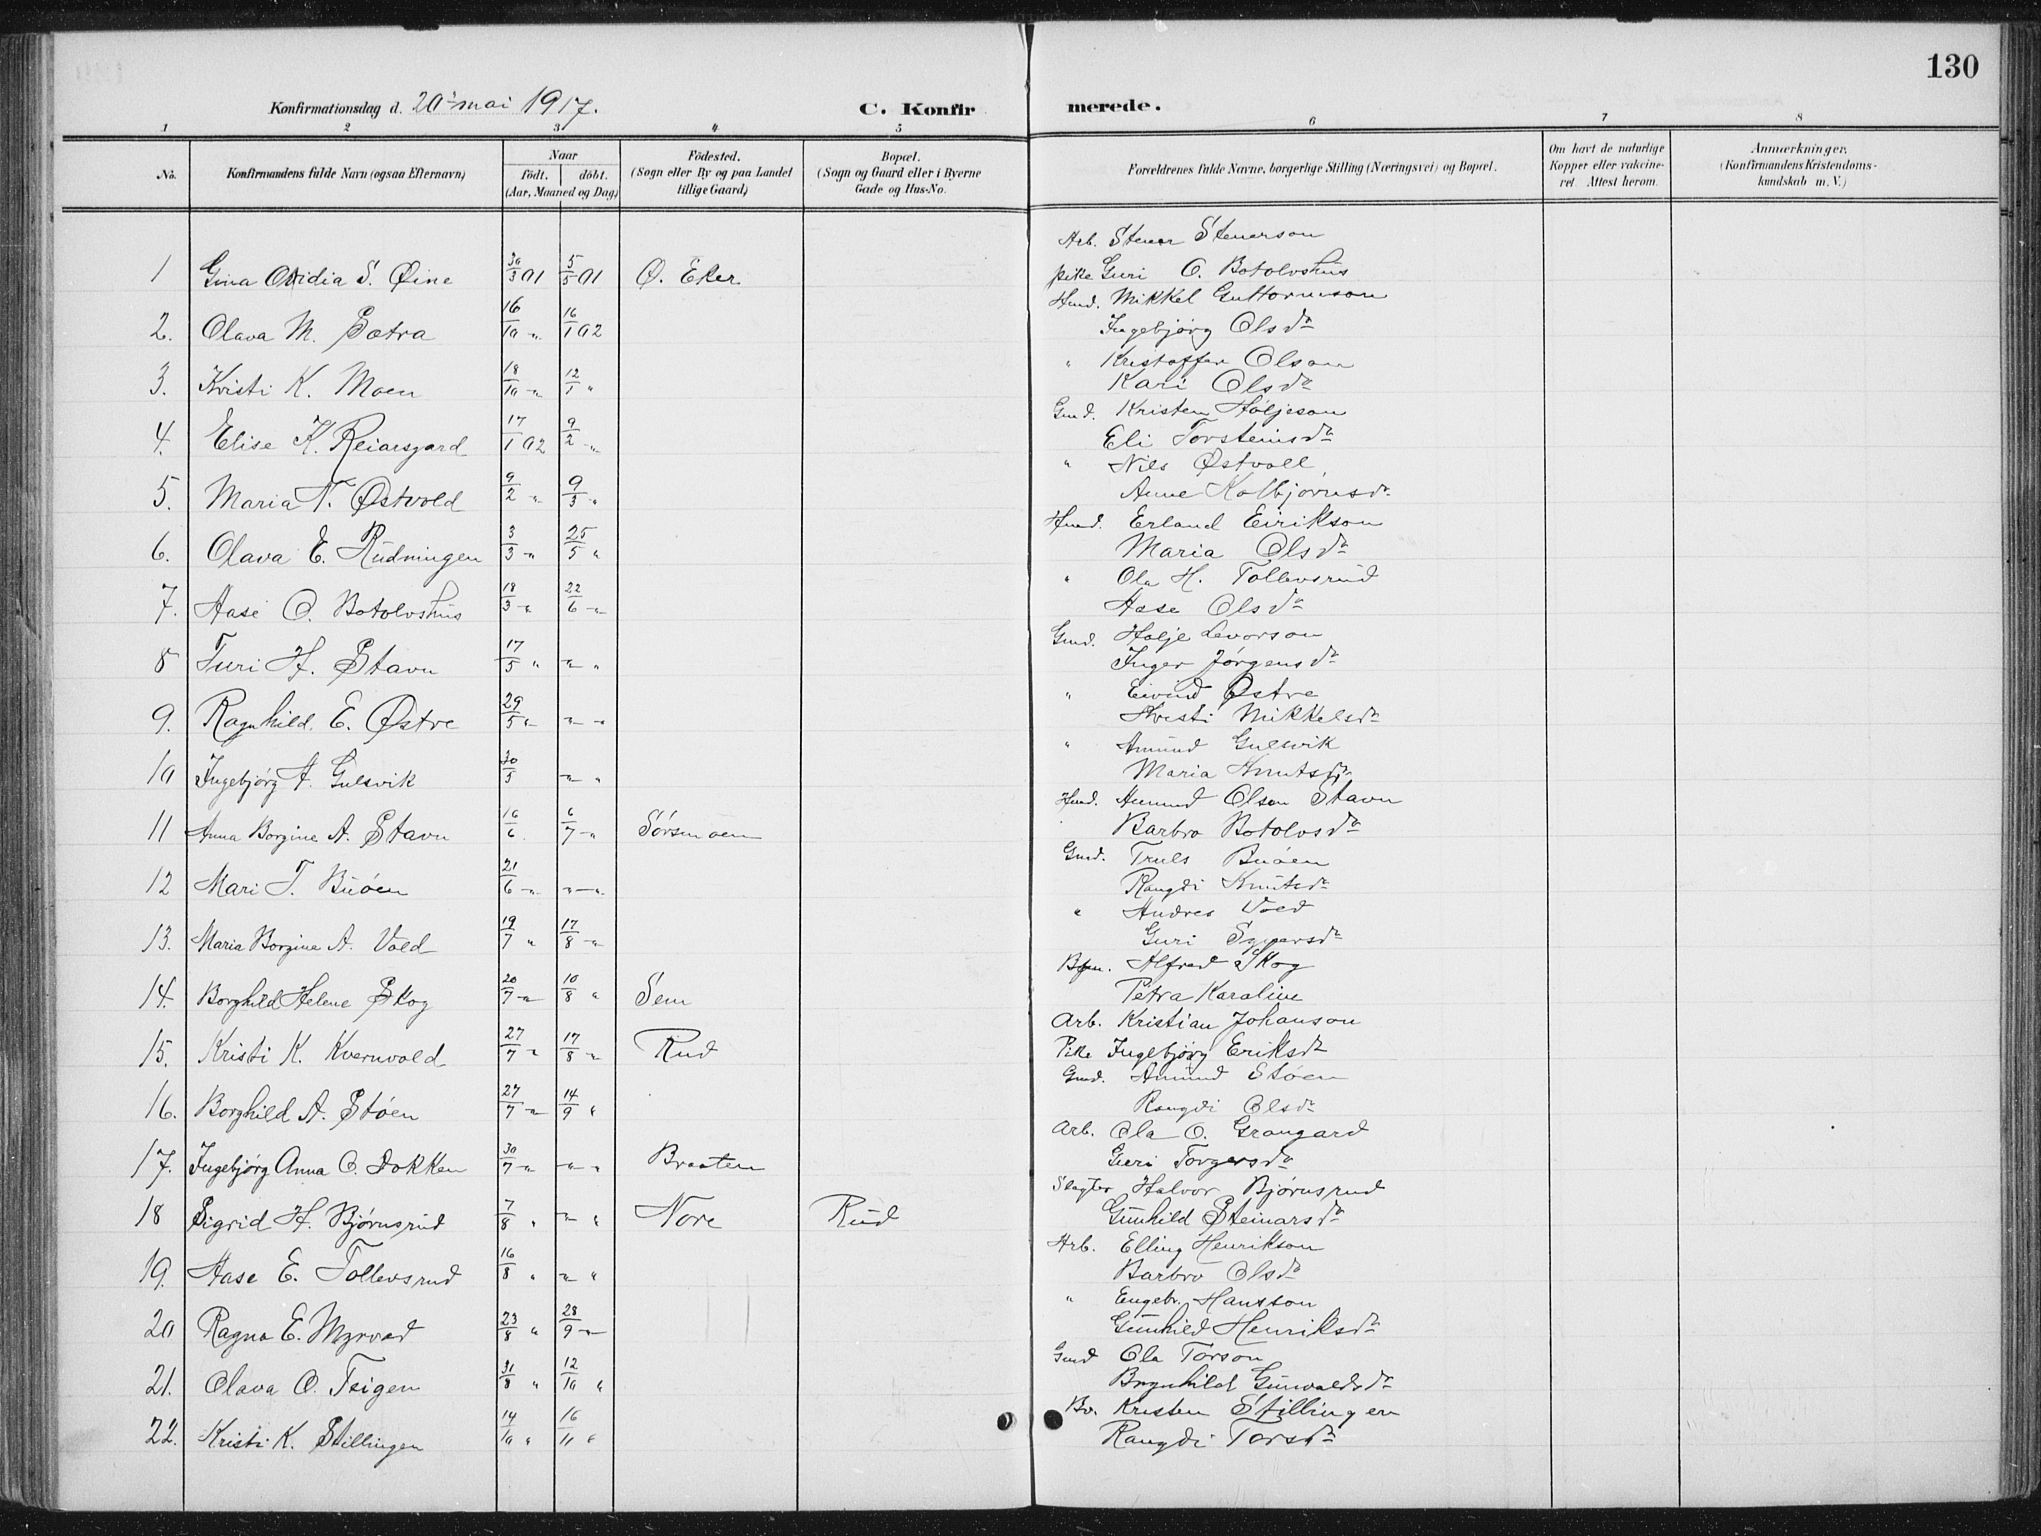 130
Konfirmationsdag d. 20de mai 1917. C. Konfirmerede.
1 2 3 4 5 6 7 8
No. Konfirmandens fulde Navn (ogsaa Efternavn) Naar født. døbt. (Aar, Maaned og Dag) Fødested. (Sogn eller By og paa Landet tillige Gaard) Bopæl. (Sogn og Gaard eller i Byerne Gade og Hus-No. Forældrenes fulde Navne, borgerlige Stilling (Næringsvei) og Bopæl. Om havt de naturlige Kopper eller vakcineret. Attest herom. Anmærkninger, (Konfirmandens Kristendomskundskab m. V.)
Arb. Stener Stenerson
1 Gina Ovidia S. Øine 30/3 01 5/5 01 Ø. Eker pike Guri O. Botolvshus
Gmd. Mikkel Guttormson
2. Olava M. Sætra 16/10 " 16/1 02 Ingebjørg Olsdr
" Kristoffer Olson
3. Kristi K. Moen 18/10 " 12/1 " Kari Olsdr
Gmd. Kristen Høljeson
4. Elise K. Reiarsgard 17/1 02 9/2 " Eli Torsteinsdr
" Nils Østvoll
5. Maria N. Østvold 9/2 " 9/3 " Anne Kolbjørnsdr
Husmd. Erland Eirikson
6. Olava E. Rudningen 3/3 " 25/5 " Maria Olsdr
" Ola H. Tollevsrud
7. Aase O. Botolvshus 18/3 " 22/6 " Aase Olsdr
Gmd. Holje Levorson
8 Turi H. Stavn 17/5 " " " Inger Jørgensdr
" Eivind Østre
9. Ragnhild E. Østre 29/5 " " " Kristi Mikkelsdr
" Amund Gulsvik
10 Ingebjørg A. Gulsvik 30/5 " " Maria Knutsdr
Husd. Amund Olson Stavn
11 Anna Borgine A. Stavn 16/6 6/7 " Sørsmoen Barbro Botolvsdr
Gmd. Truls Buøen
12 Mari T. Buøen 21/6 " " " Rangdi Knutsdr
" Andres Vold
13. Maria Borgine A. Vold 19/7 " 17/8 " Guri
Alfred Skog
14. Borghild Helene Skog 20/7 " 10/8 " Sem Petra Karoline
Arb. Kristian Johanson
15. Kristi K. Kvernvold 27/7 " 17/8 " Rud Pike Ingebjørg Eriksdr
Gmd. Amund Støen
16. Borghild A. Støen 27/7 " 14/9 " Rangdi Olsdr
Arb. Ola O. Grangard
17. Ingebjørg Anna O. Dokken 30/7 " " " Braaten Guri Torgersdr
Slagter Halvor Bjørnsrud
18 Sigrid H. Bjørnsrud 7/8 " " " Nore Rud Gunhild Steinarsdr
Arb. Elling Henrikson
19. Aase E. Tollevsrud 16/8 " " " Barbro Olsdr
" Engebr. Hansson
20 Ragna E. Myrvad 23/8 " 28/9 " Gunhild Henriksdr
Gmd Ola Torson
21. Olava O. Teigen 31/8 " 12/10 " Brynhild Gunvaldsdr
Bv. Kristen Stillingen
22. Kristi K. Stillingen 14/10 " 16/11 " Rangdi Torsdr